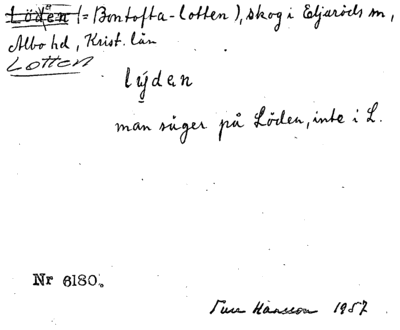 Löden (= Bontofta-lotten), skog i Eljaröds sn,
Albo hd, Krist. län
Lotten
lýdan
man säger på Löden, inte i L.
Nr 6180.
Hansson 1957